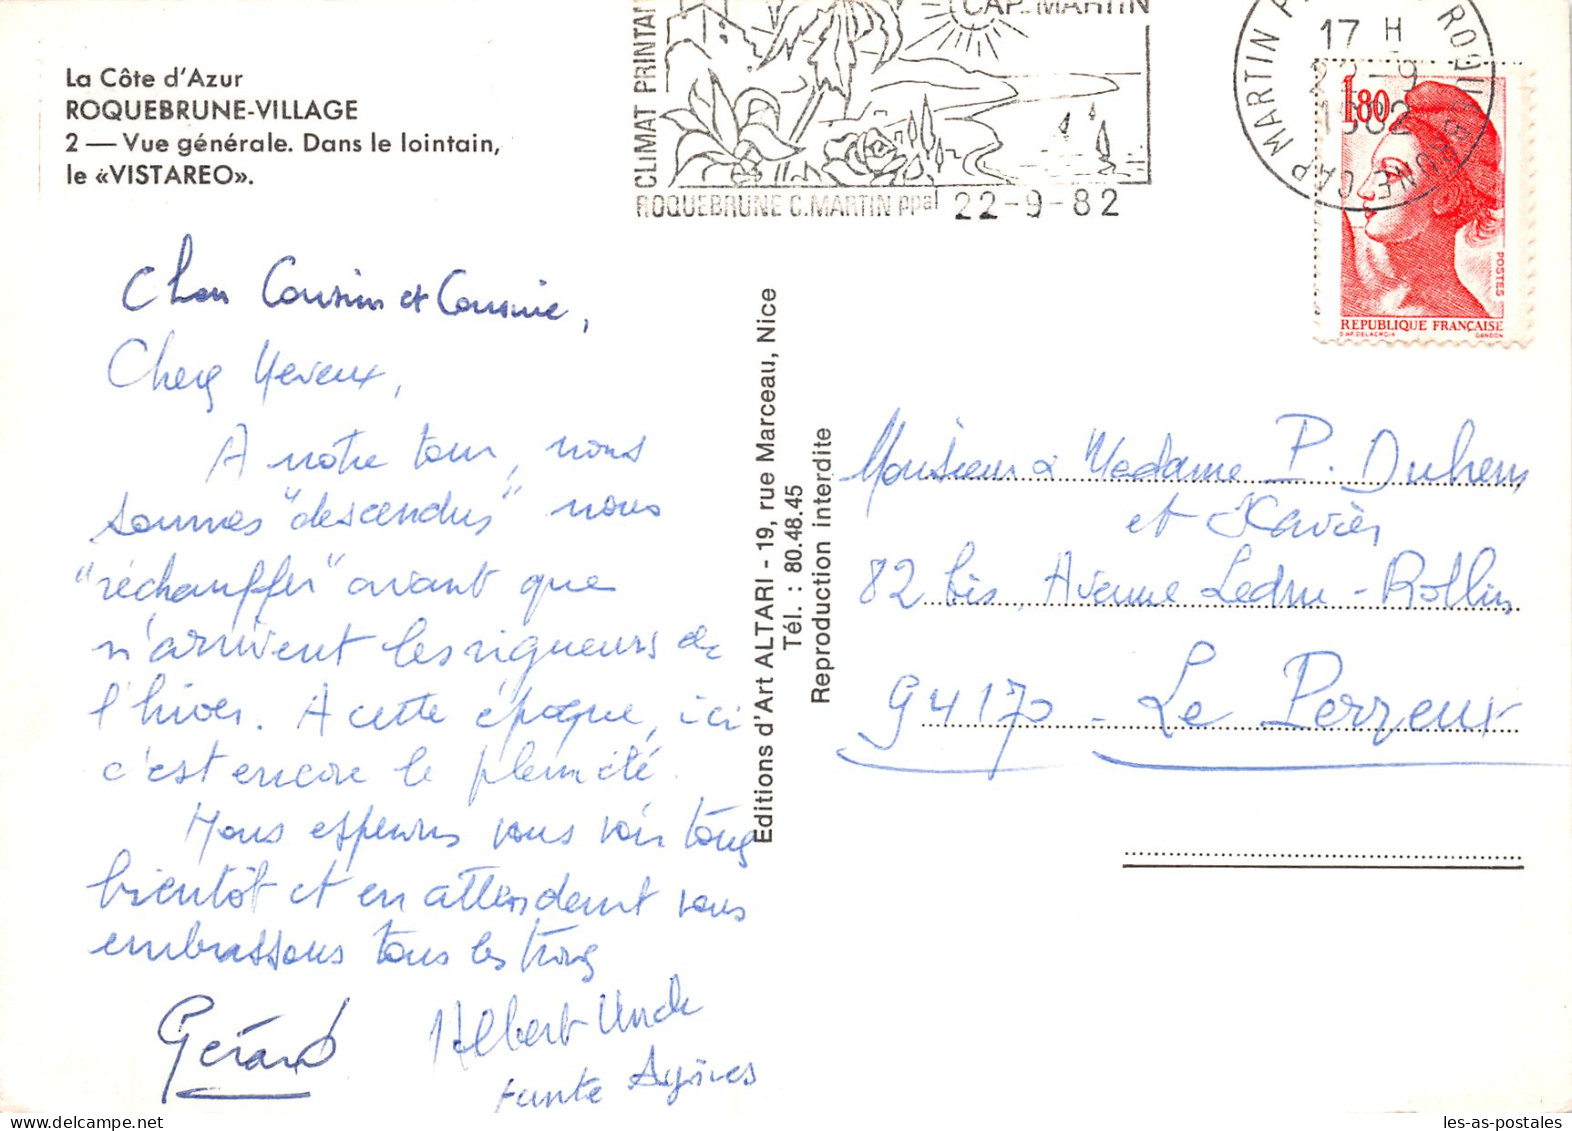 La Côte d'Azur
ROQUEBRUNE-VILLAGE
2 — Vue générale. Dans le lointain,
le «VISTAREO».
CLIMAT PRINTA
CAP. MARTIN
ROQUEBRUNE C.MARTIN ppal 22-9-82
CAP MARTIN ROQUEBRUNE
17 H
22-9
1982
1,80
POSTES
REPUBLIQUE FRANÇAISE
D'AP. DELACROIX GANDON
Chers Cousin et Cousine,
Cher Neveux,
A notre tour, nous
sommes "descendus" nous
"réchauffer" avant que
n'arrivent les rigueurs de
l'hiver. A cette époque, ici
c'est encore le plein été.
Nous espérons vous voir tous
bientôt et en attendant vous
embrassons tous les trois
Gérard
Albert
tante
Editions d'Art ALTARI - 19, rue Marceau, Nice
Tél. : 80.48.45
Reproduction interdite
Monsieur & Madame P. Duhem
et Xavier
82 bis, Avenue Ledru-Rollin
94170 - Le Perreux
les-as-postales